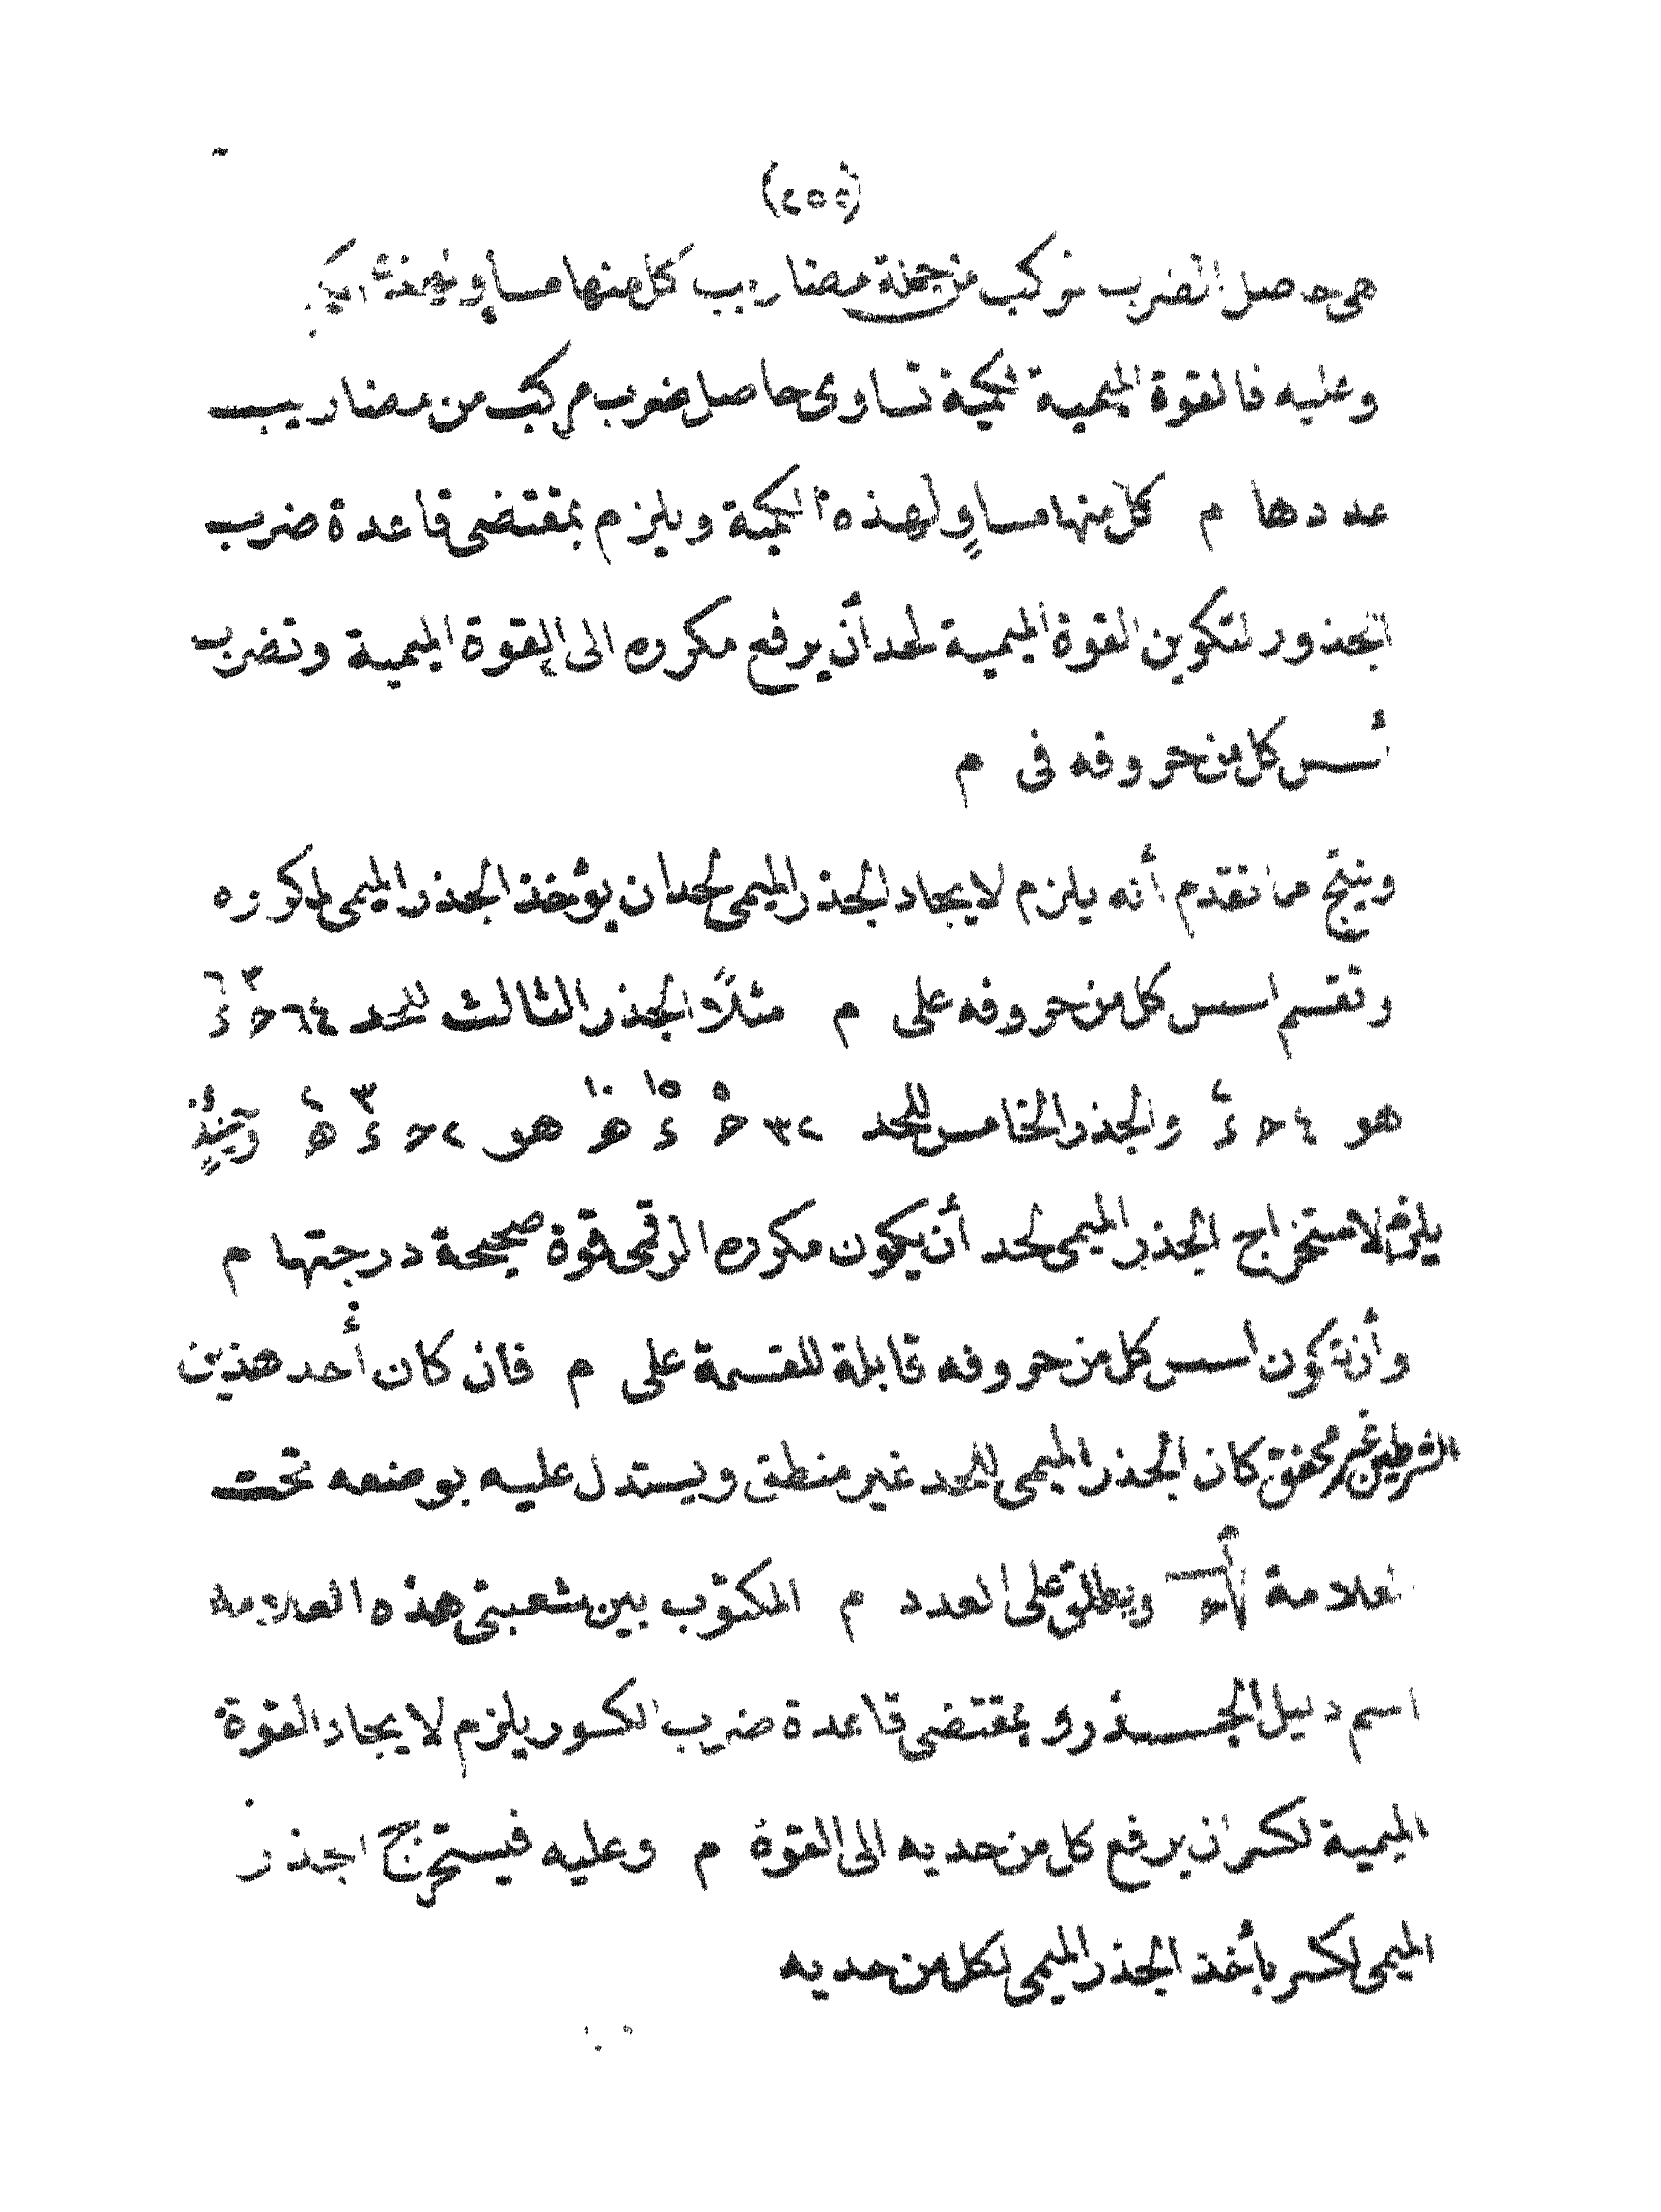 (٢٥٥)
هى حاصل الضرب مركب من جملة مضاريب كل منها مساو
وعليه فالقوة الميمية لكمية تساوى حاصل ضرب مركب من مضاريب
عددها م كل منها مساوٍ لهذه الكمية ويلزم بمقتضى قاعدة ضرب
الجذور لتكوين القوة الميمية لحد أن يرفع مكرره الى القوة الميمية وتضرب
أسس كل من حروفه فى م
وينتج مما تقدم أنه يلزم لايجاد الجذر الميمى لحد ان يؤخذ الجذر الميمى لمكرره
وتقسم اسس كل من حروفه على م مثلاً الجذر الثالث للحد ٦٤ حـ٣ ء٦
هو ٤ حـ ء٢ والجذر الخامس للحد ٣٢ حـ٥ ء١٥ هـ١٠ هو ٢ حـ ء٣ هـ٢ وحينئذٍ
يلزم لاستخراج الجذر الميمى لحد أن يكون مكرره الرقمى قوة صحيحة درجتها م
وأن تكون اسس كل من حروفه قابلة للقسمة على م فان كان أحد هذين
الشرطين غير محقق كان الجذر الميمى للحد غير منطق ويستدل عليه بوضعه تحت
العلامة م√حـ ويطلق على العدد م المكتوب بين شعبتى هذه العلامة
اسم دليل الجـــذر و بمقتضى قاعدة ضرب الكسور يلزم لايجاد القوة
الميمية لكسر ان يرفع كل من حديه الى القوة م وعليه فيستخرج الجذر
الميمى لكسر بأخذ الجذر الميمى لكل من حديه